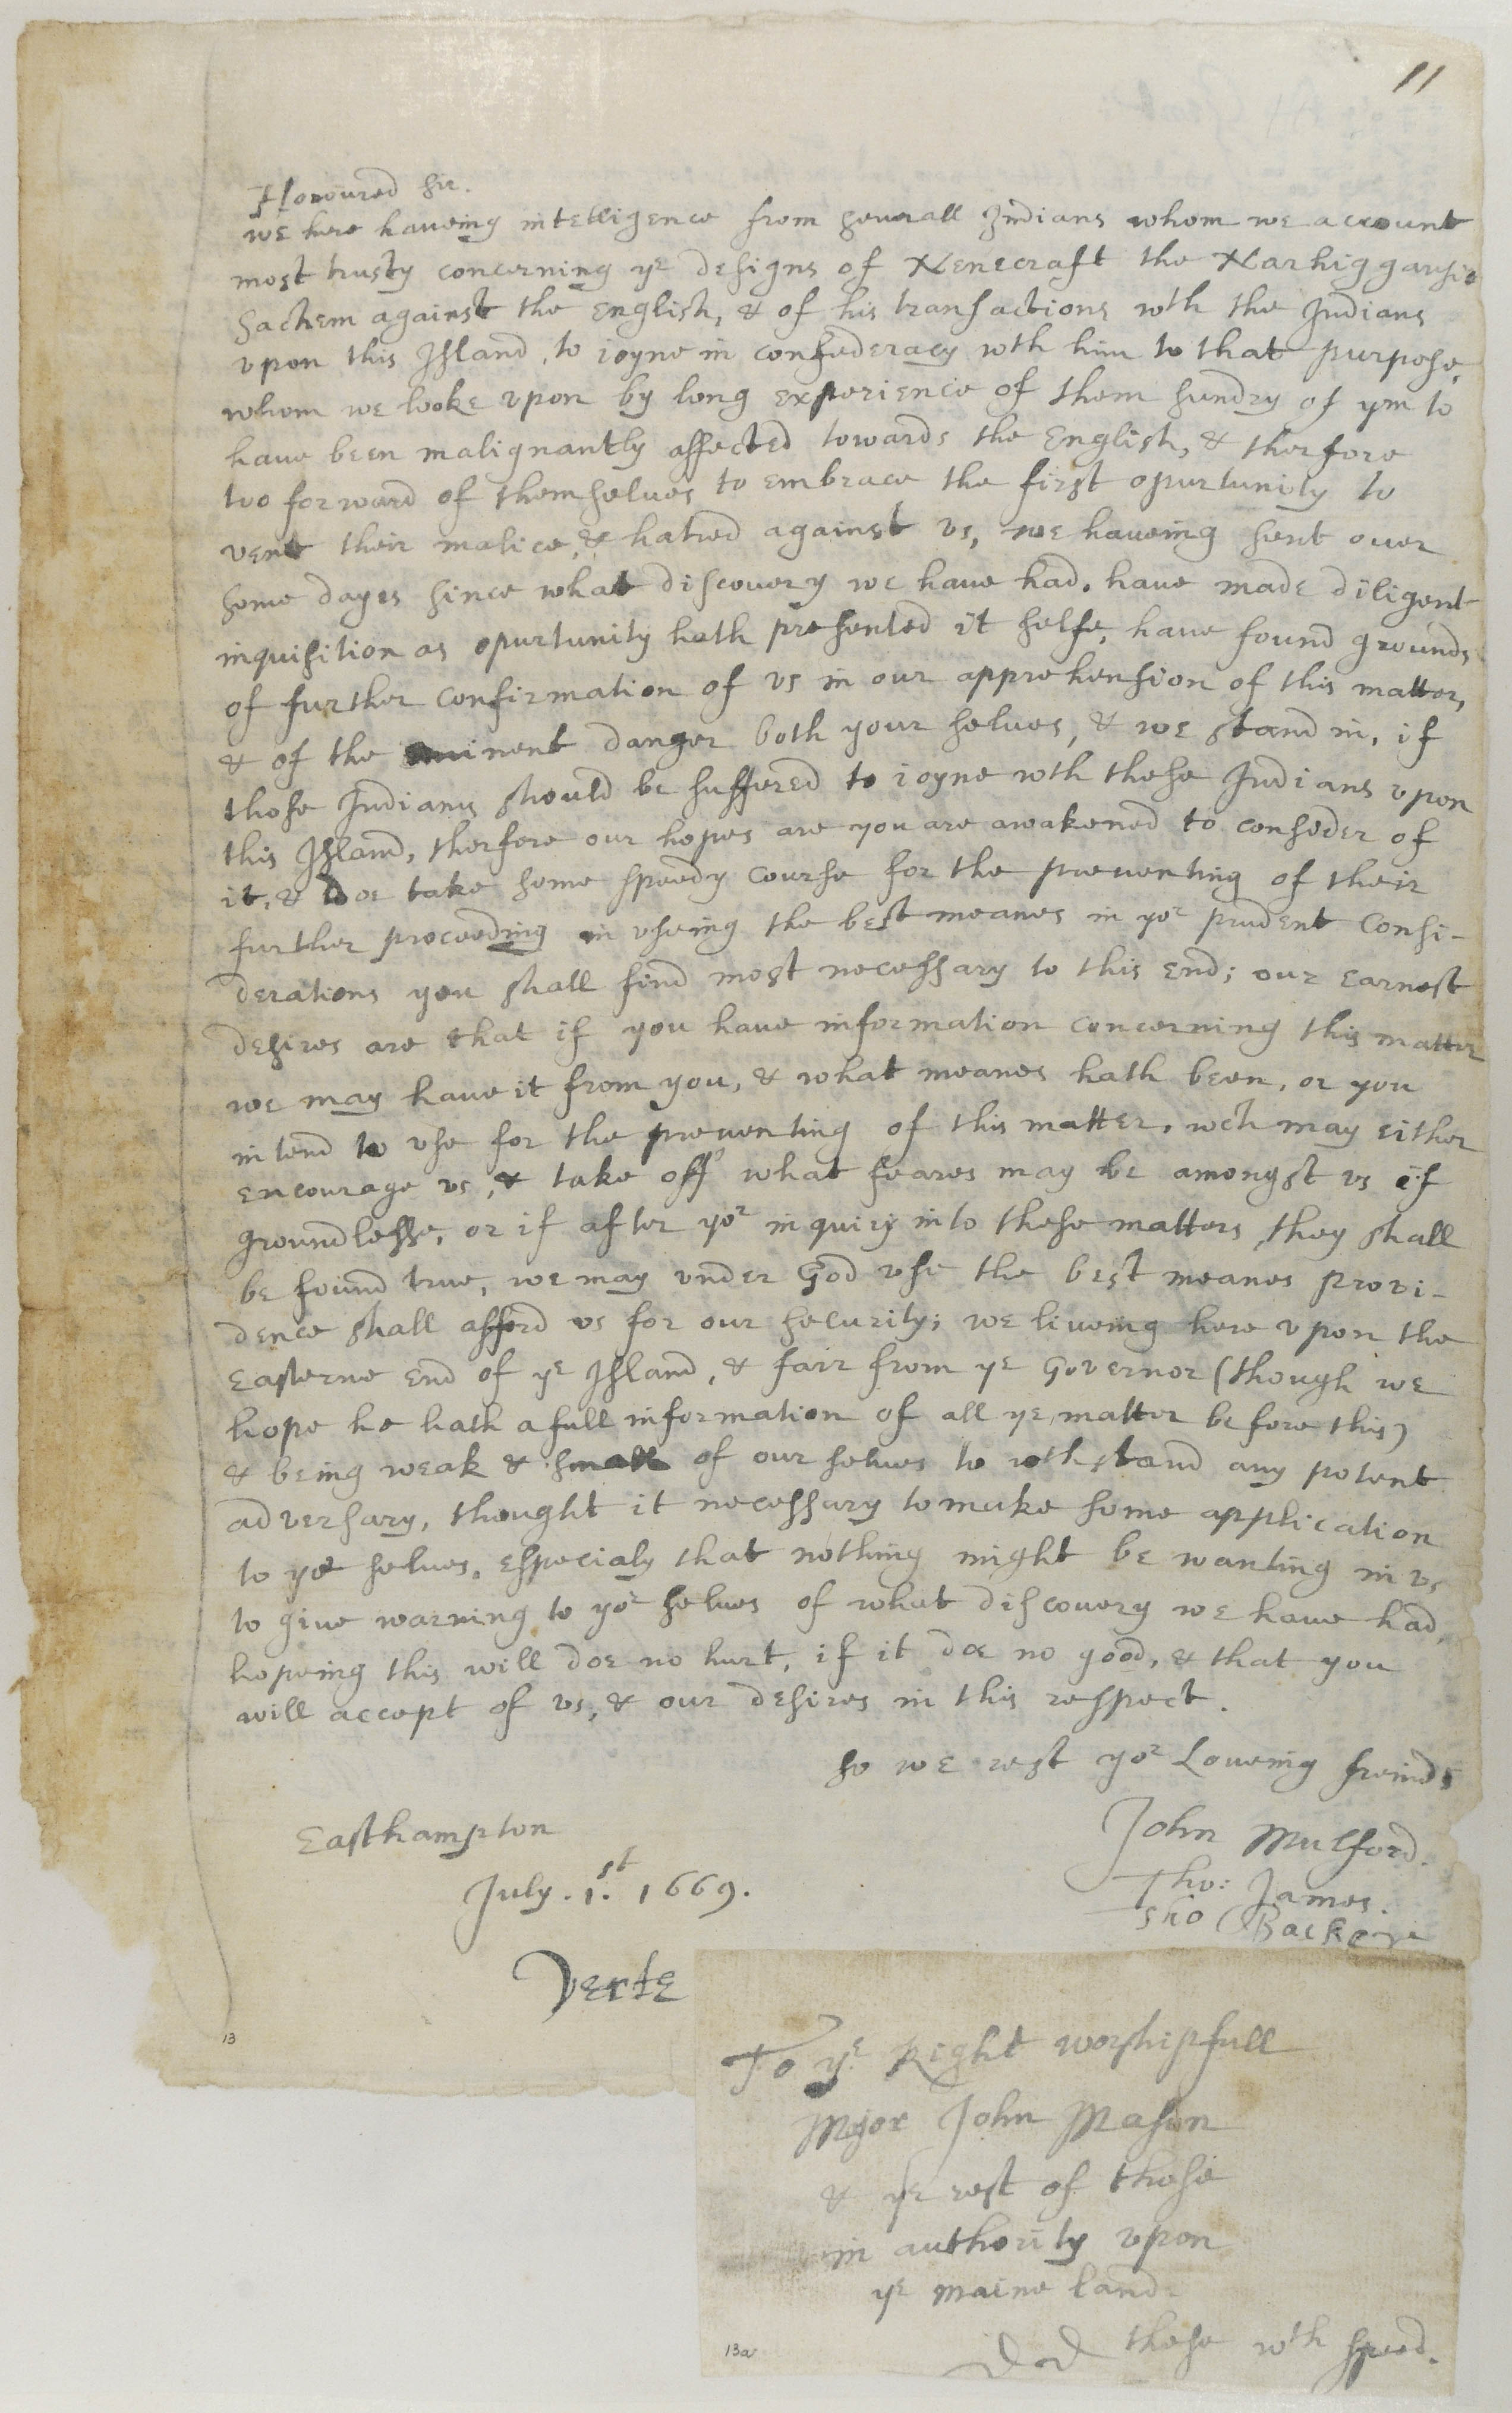 11
Honoured Sir.
we here haueing intelligence from seuerall Indians whom we account
most trusty concerning ye designs of Nenecraft the Narhiggansie
Sachem against the English, & of his transactions wth the Indians
vpon this Island, to ioyne in confederacy wth him to that purpose,
whom we looke vpon by long experience of them sundry of ym to
haue been malignantly affected towards the English, & therfore
too forward of themselues to embrace the first opurtunity to
vent their malice, & hatred against vs, we haueing sent ouer
some dayes since what discouery we haue had, haue made diligent
inquisition as opurtunity hath presented it selfe, haue found grounds
of further confirmation of vs in our apprehension of this matter,
& of the minent danger both your selues, & we stand in, if
those Indians should be suffered to ioyne wth these Indians vpon
this Island, therfore our hopes are you are awakened to consider of
it, & doe take some speedy course for the preuenting of their
further proceeding in vseing the best meanes in yor prudent Consi-
derations you shall find most necessary to this end; our earnest
desires are that if you haue information concerning this matter
we may haue it from you, & what meanes hath been, or you
intend to vse for the preuenting of this matter, wch may either
encourage vs, & take off what feares may be amongst vs if
groundlesse, or if after yor inquiry into these matters, they shall
be found true, we may vnder God vse the best meanes provi-
dence shall afford vs for our security; we liueing here vpon the
Easterne end of ye Island, & farr from ye Governor (though we
hope he hath a full information of all ye matter before this)
& being weak & small of our selues to wthstand any potent
adversary, thought it necessary to make some application
to yor selues, especialy that nothing might be wanting in vs
to giue warning to yor selues of what discouery we haue had,
hopeing this will doe no hurt, if it doe no good, & that you
will accept of vs, & our desires in this respect.
so we rest yor Loueing freinds
John Mulford.
Easthampton
Tho: James.
July. 1.st 1669.
Tho Backer
Verte
To ye Right worshipfull
Major John Mason
& ye rest of those
in authority vpon
ye maine land
dd these wth speed.
13
13a